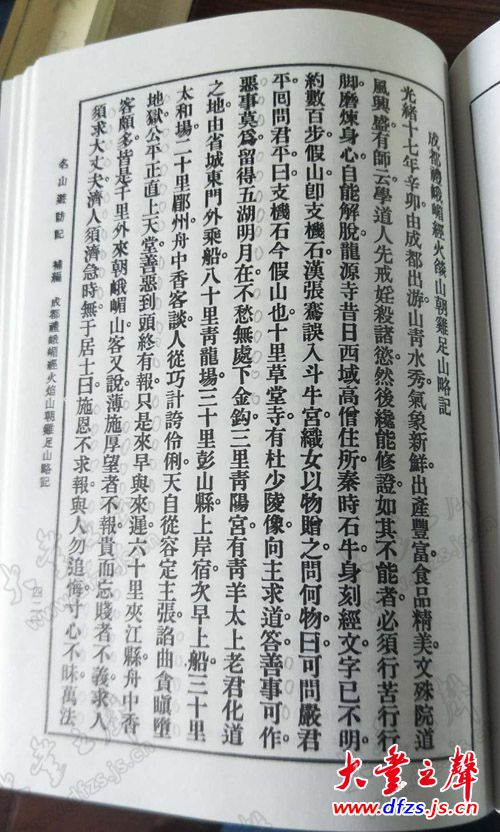 成都禮峨嵋經火燄山朝雞足山略記
光緒十七年辛卯由成都出游山青水秀氣象新鮮出產豐富食品精美文殊院道
風興盛有師云學道人先戒婬殺諸慾然後纔能修證如其不能者必須行苦行行
腳磨煉身心自能解脫龍源寺昔日西域高僧住所秦時石牛身刻經文字已不明
約數百步假山卽支機石漢張騫誤入斗牛宮織女以物贈之問何物曰可問嚴君
平囘問君平曰支機石今假山也十里草堂寺有杜少陵像向主求道答善事可作
惡事莫爲留得五湖明月在不愁無處下金鈎三里靑陽宮有靑羊太上老君化道
之地由省城東門外乘船八十里靑龍場三十里彭山縣上岸宿次早上船三十里
太和場二十里郿州舟中香客談人從巧計誇伶俐天自從容定主張諂曲貪瞋墮
地獄公平正直上天堂善惡到頭終有報只是來早與來遲六十里夾江縣舟中香
客頗多皆是千里外來朝峨嵋山客又說薄施厚望者不報貴而忘賤者不義求人
須求大丈夫濟人須濟急時無于居士曰施恩不求報與人勿追悔寸心不昧萬法
名山遊訪記 補編 成都禮峨嵋經火焰山朝雞足山略記
四二
大業之聲
www.dfzs.js.cn